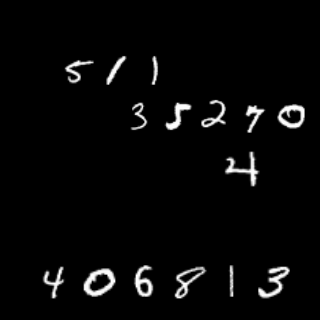 511
35270
4
406813